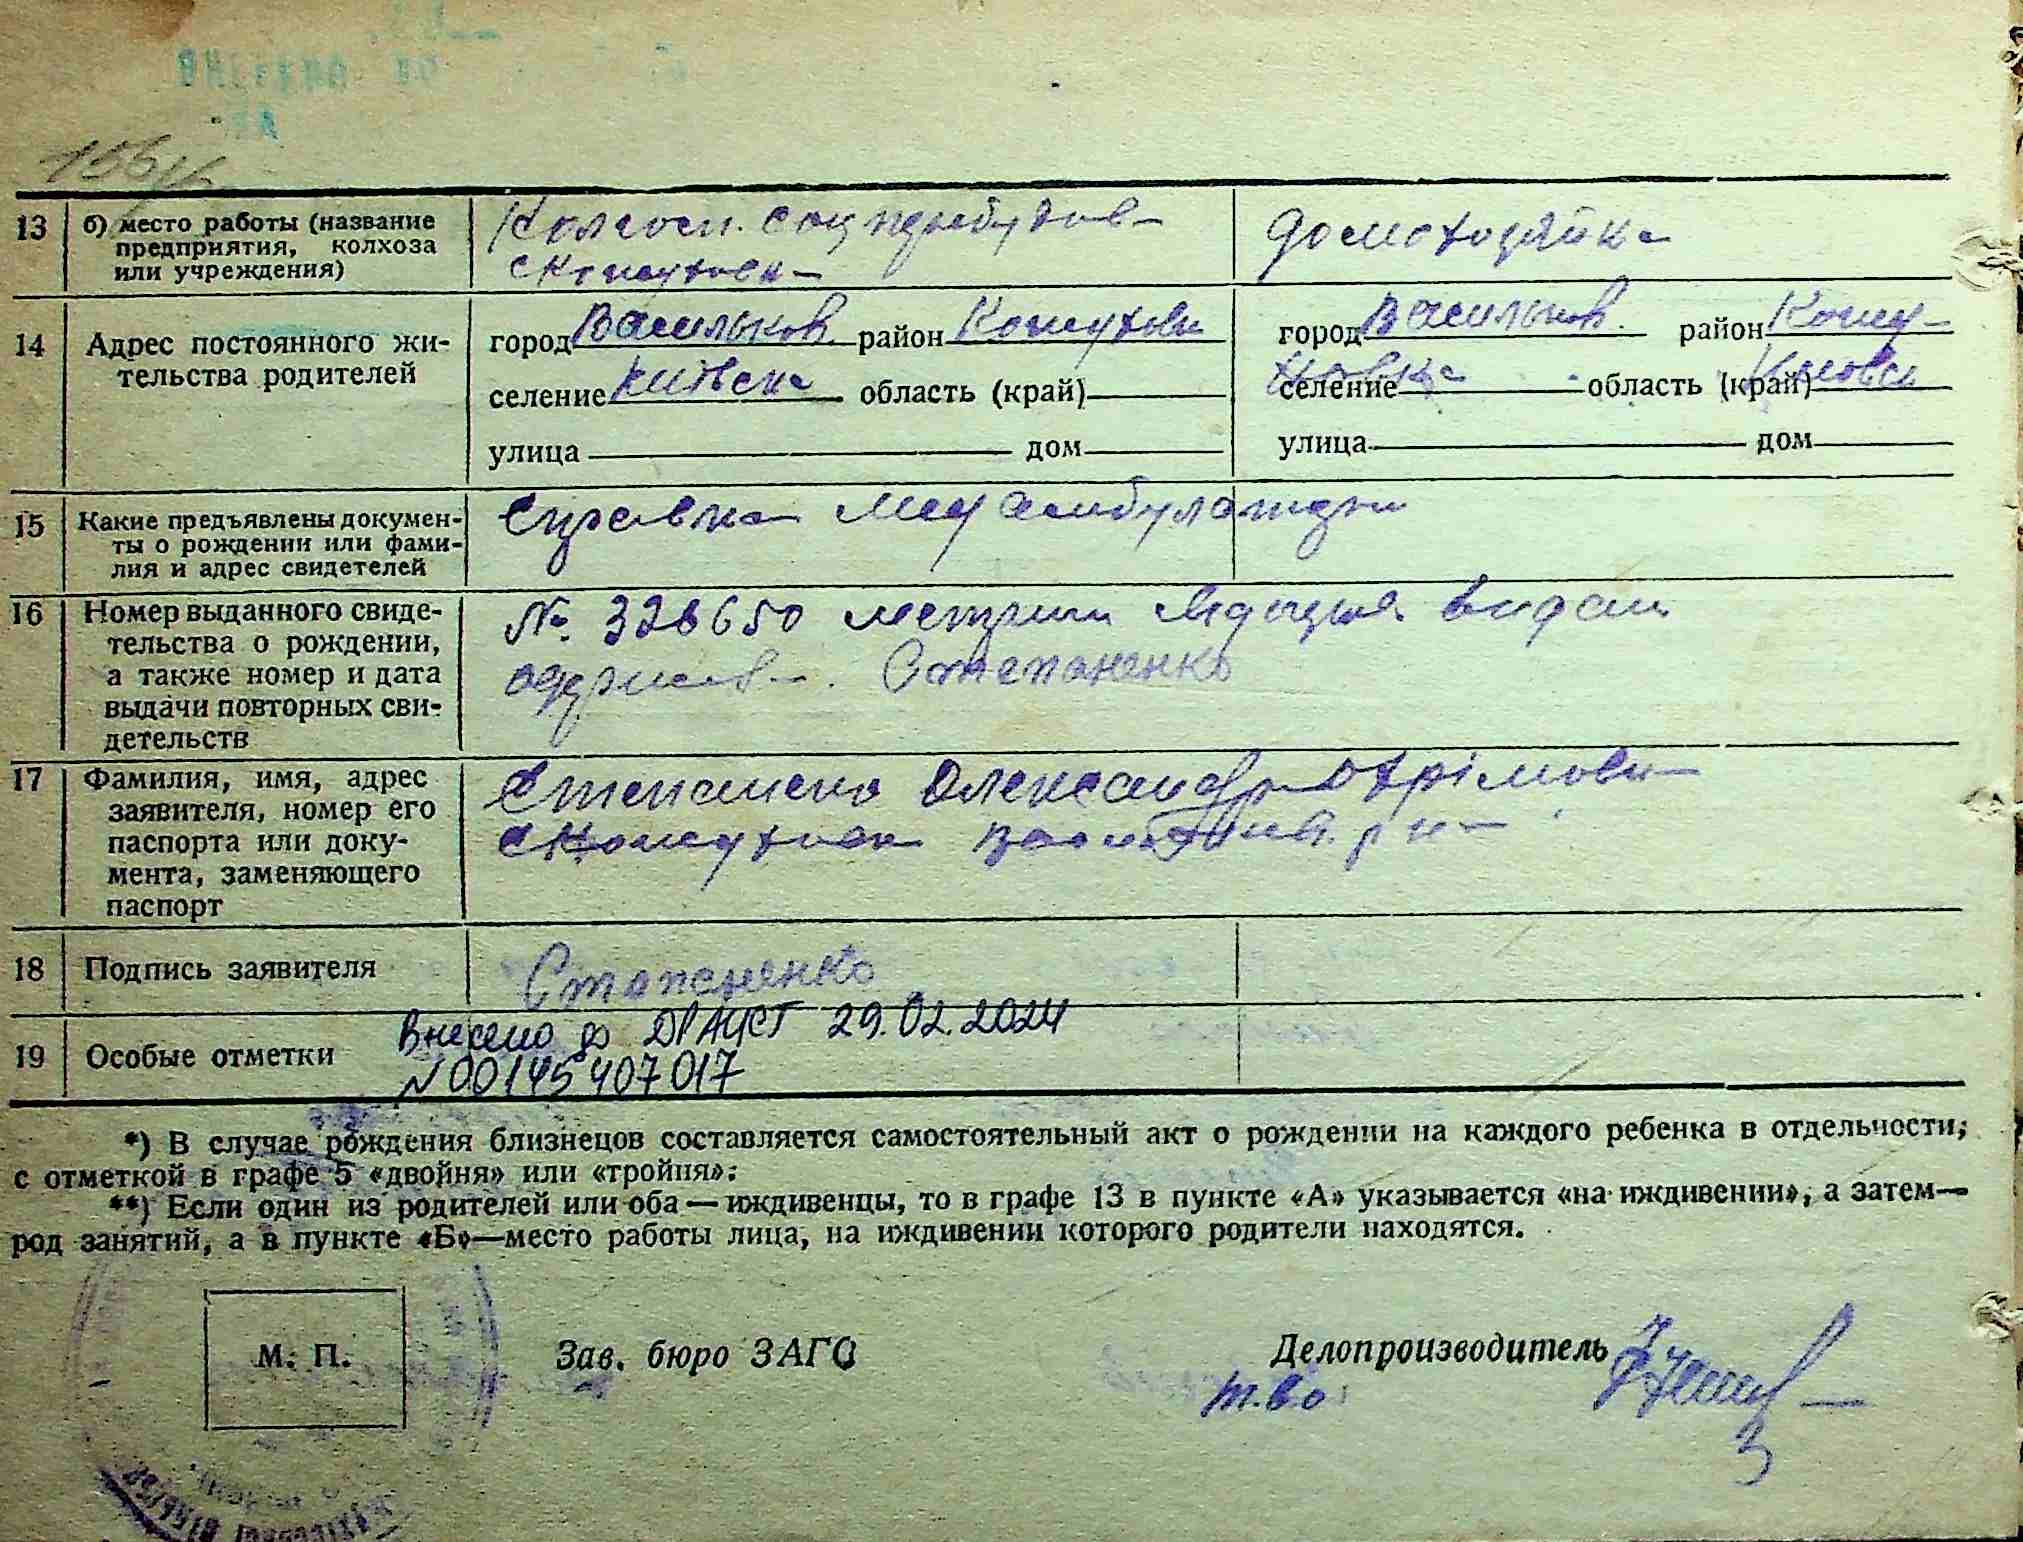 156
13 б) место работы (название предприятия, колхоза или учреждения) Колгосп. соц
домохозяйка
14 Адрес постоянного жительства родителей
город Васильков район
селение Київска область (край)
улица дом
город Васильков район
селение область (край)
улица дом
15 Какие предъявлены документы о рождении или фамилия и адрес свидетелей Справка Мед амбулатории
16 Номер выданного свидетельства о рождении, а также номер и дата выдачи повторных свидетельств № 328650 метрики
Степаненко
17 Фамилия, имя, адрес заявителя, номер его паспорта или документа, заменяющего паспорт Степаненко Олександр
18 Подпись заявителя Степаненко
19 Особые отметки Внесено до ДРАЦСГ 29.02.2024
N 00145407017
*) В случае рождения близнецов составляется самостоятельный акт о рождении на каждого ребенка в отдельности,
с отметкой в графе 5 «двойня» или «тройня».
**) Если один из родителей или оба — иждивенцы, то в графе 13 в пункте «А» указывается «на иждивении», а затем—
род занятий, а в пункте «Б»—место работы лица, на иждивении которого родители находятся.
М. П. Зав. бюро ЗАГС Делопроизводитель
т.в.о.